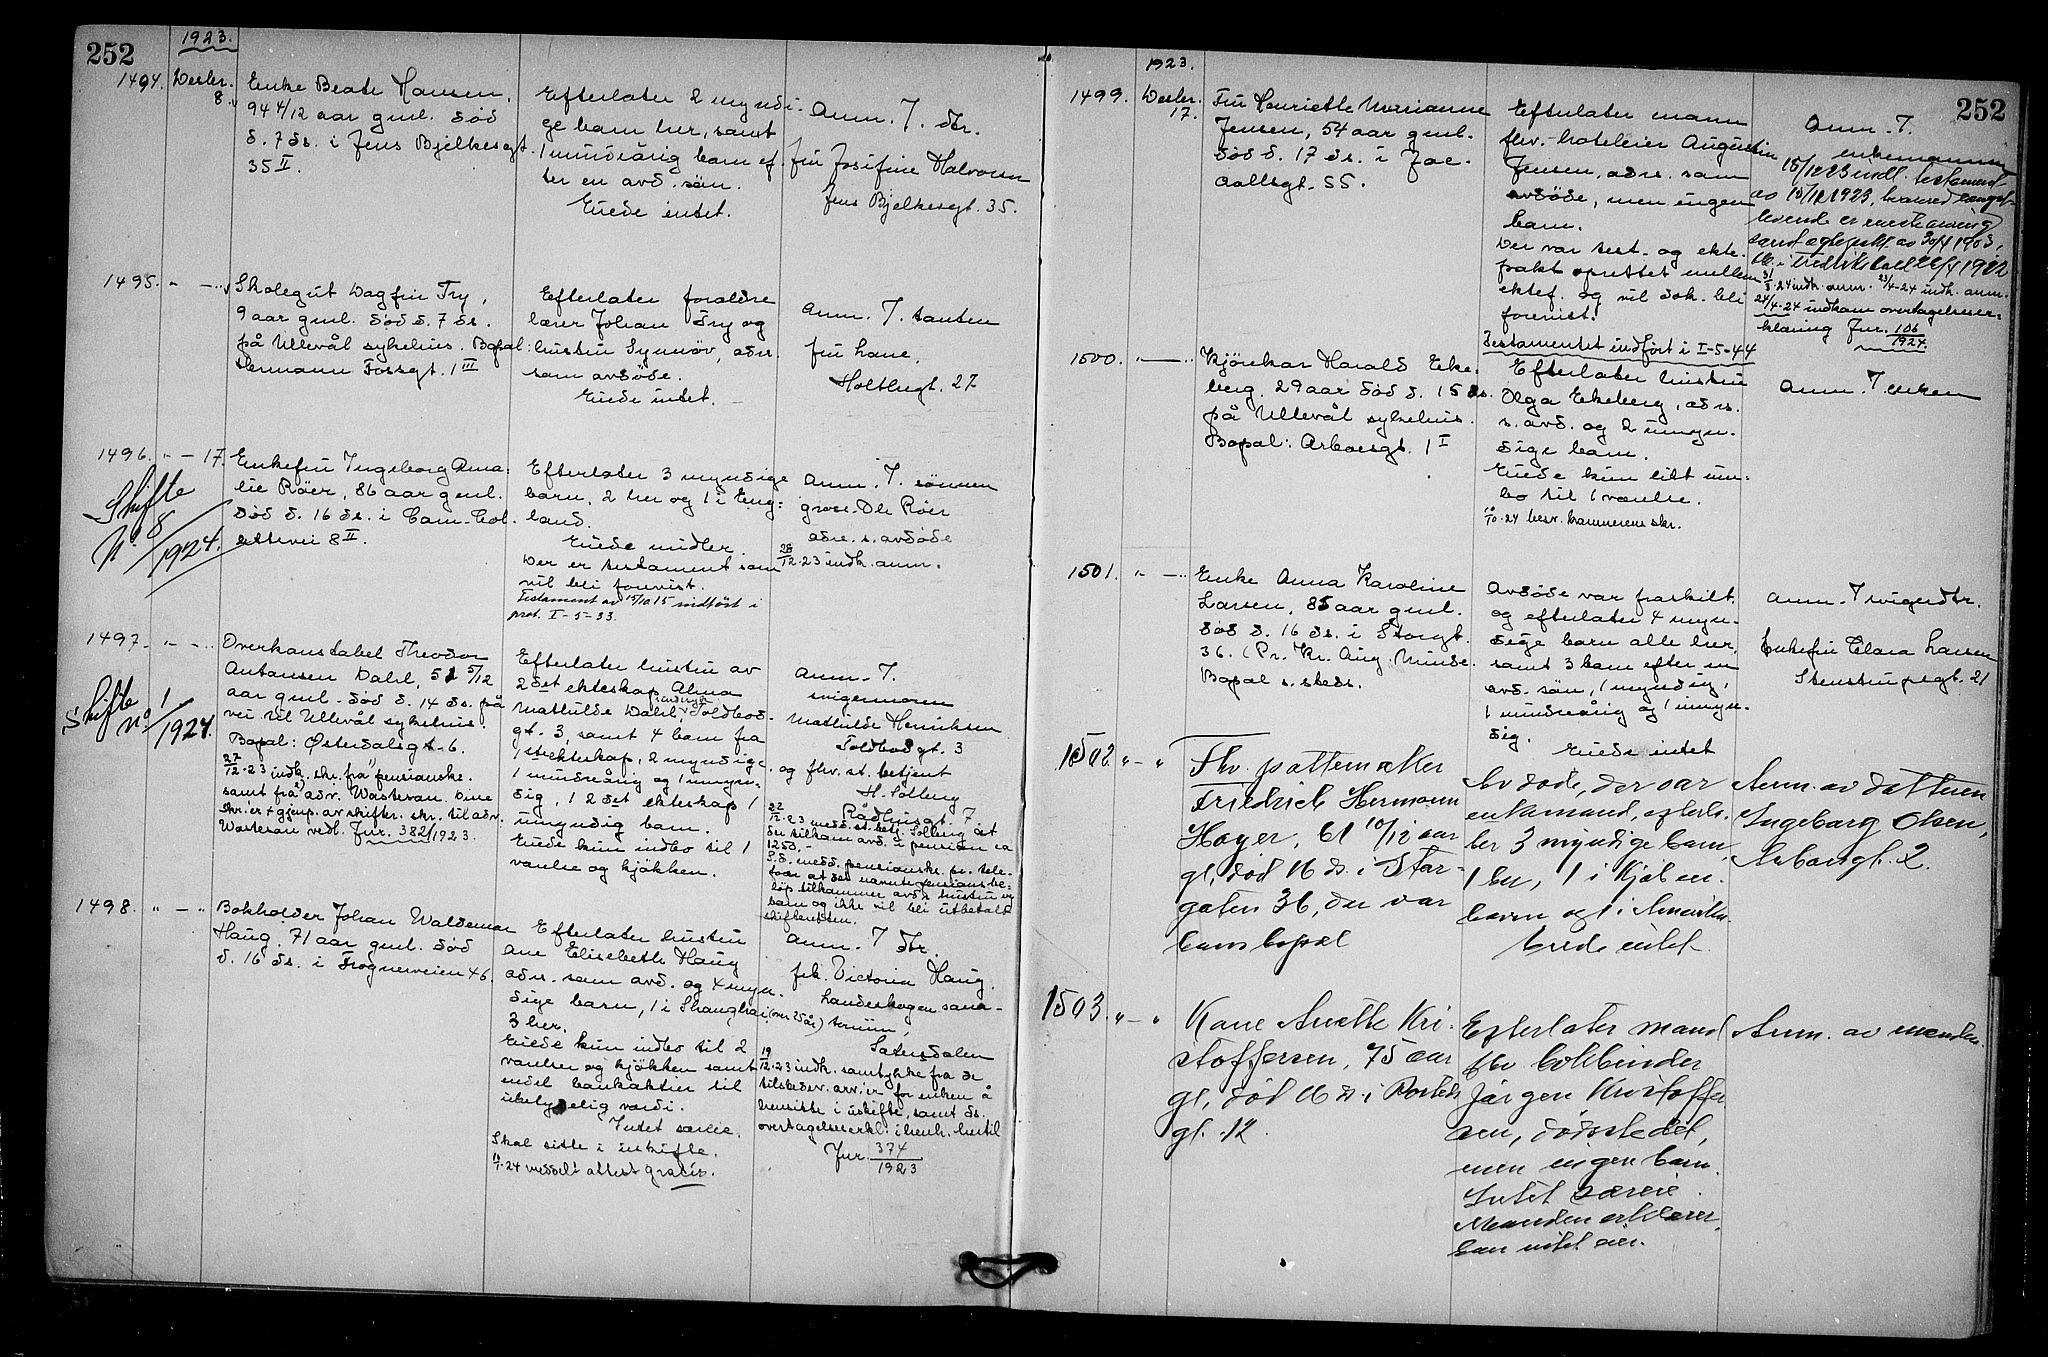 252
1923.
1494. Desbr. 8.
Enke Beate Hansen,
94 4/12 aar gml. död
d. 7 ds. i Jens Bjelkesgt.
35 II.
Efterlater 2 myndi-
ge barn her, samt
1 mindreårig barn ef-
ter en avd. sön.
Eiede intet.
Anm. 7. dtr.
fru Josefine Halvorsen
Jens Bjelkesgt. 35.
1495. " — "
Skolegut Dagfin Try,
9 aar gml. död d. 7 ds.
på Ullevål sykehus. Bopæl:
Hermann Fossgt. 1 III
Efterlater foraldre
lærer Johan Try og
hustru Synnöv, adr.
som avdöde.
Eiede intet.
Anm. 7. tanten
fru Lane,
Holtegt. 27
1496. " — 17.
Skifte
No. 8/1924.
Enkefru Ingeborg Ama-
lie Röer, 86 aar gml.
död d. 16 ds. i Cam. Col-
lettsvei 8 II.
Efterlater 3 myndige
barn, 2 her og 1 i Eng-
land.
Eiede midler.
Der er testament som
vil bli forevist.
Testament av 15/10.15 indfört i
prot. I-5-33.
Anm. 7. sönnen
gros. Ole Röer
adr. s. avdöde
28/12-23 indk. anm.
1497. " — "
Skifte
No. 1/1924.
Overkonstabel Theodor
Antonsen Dahl, 51 5/12
aar gml. död d. 14 ds. på
vei til Ullevål sykehus.
Bopæl: Østerdalsgt. 6.
27/12-23 indk. skr. fra pensjonske.
samt fra adv. Wasteson. Dine
skr. er + gjenp. av skifter. skr. til adv.
Wasteson vedl. Jnr. 382/1923.
Efterlater hustru av
2det ekteskap Alma
Mathilde Dahl, Toldbod-
gt. 3, samt 4 barn fra
1ste ekteskap, 2 myndige,
1 mindreårig og 1 umyn-
dig, i 2det ekteskap 1
umyndig barn.
Eiede kun indbo til 1
værelse og kjökken.
Anm. 7.
svigermoren
Mathilde Henriksen
Toldbodgt. 3
og fhv. st. betjent
H. Solberg
Rådhusgt. 7.
22/12-23 medd. st. betj. Solberg at
der tilkom avd. i pension ca
1250.-
S.d. medd. pensjonske. pr. tele-
fon at det nævnte pensjonsbe-
löp tilkommer avd.s hustru og
barn og ikke vil bli utbetalt
skifteretten.
1498. " — "
Bokholder Johan Waldemar
Haug, 71 aar gml. död
d. 16 ds. i Frognerveien 46.
Efterlater hustru
Ane Elisebeth Haug
adr. som avd. og 4 myn-
dige barn, 1 i Shanghai, (over 25 år)
3 her.
Eiede kun indbo til 2
værelser og kjökken samt
endel bankaktier til
ubetydelig værdi.
Intet særeie.
Skal sitte i uskifte.
11/1-24 meddelt attest gratis.
Anm. 7 dtr.
frk. Victoria Haug.
Landeskogen sana-
torium,
Sætersdalen
19/12-23 indk. samtykke fra de
tilstedev. arv.er for enken å
hensitte i uskifte, samt ds.
overtagelseserkl. i henh. hertil
Jnr. 374/1923
252
1923.
1499. Desbr. 17.
Fru Henriette Marianne
Jensen, 54 aar gml.
död d. 17 ds. i Jac.
Aallsgt. 55.
Efterlater mann
fhv. hoteleier Augustin
Jensen, adr. som
avdöde, men ingen
barn.
Der var test. og ekte-
pakt oprettet mellem
ektef. og vil dok. bli
forevist.
Testamentet indfört i I-5-44
Anm. 7.
enkemannen
18/12 23 indl. testament
av 15/12 1923, hvorved længst-
levende er eneste arving
samt ægtepakt av 30/4 1903,
tl. i Fredrikshald 26/4 1912
31/3-24 indk. anm. 23/4-24 indk. anm.
24/4-24 indkom overtagelseser-
klæring Jnr. 106/1924.
1500. " — "
Kjörekar Harald Eke-
berg, 29 aar död d. 15 ds.
på Ullevål sykehus.
Bopæl: Arboesgt. 1 I
Efterlater hustru
Olga Ekeberg, adr.
s. avd. og 2 umyn-
dige barn.
Eiede kun litt inn-
bo til 1 værelse.
9/10-24 besv. kæmnerens skr.
Anm. 7 enken
1501. " — "
Enke Anna Karoline
Larsen, 85 aar gml.
död d. 16 ds. i Storgt.
36. (Pr. Kr. Aug. Minde.
Bopæl s. steds.
Avdöde var fraskilt
og efterlater 4 myn-
dige barn alle her,
samt 3 barn efter en
avd. sön, 1 myndig,
1 mindreårig og 1 umyn-
dig.
Eiede intet
Anm. 7 svigerdtr.
Enkefru Clara Larsen
Stenstrupsgt. 21
1502. " — "
Fhv. pottemaker
Friedrich Hermann
Hoyer, 61 10/12 aar
gl., död 16 ds. i Stor-
gaten 36, der var
hans bopæl
Avdöde, der var
enkemand, efterla-
ter 3 myndige barn,
1 her, 1 i Kjøben-
havn og 1 i Amerika.
Eiede intet.
Anm. av datteren
Ingeborg Olsen,
Arboesgt. 2.
1503. " — "
Kone Anette Kri-
stoffersen, 75 aar
gl., död 16 ds. i Rosteds
gt. 12.
Efterlater mand
fhv bokbinder
Jörgen Kristoffer-
sen, dödsstedet,
men ingen barn.
Intet særeie.
Manden erklærer,
han intet eier.
Anm. av manden.